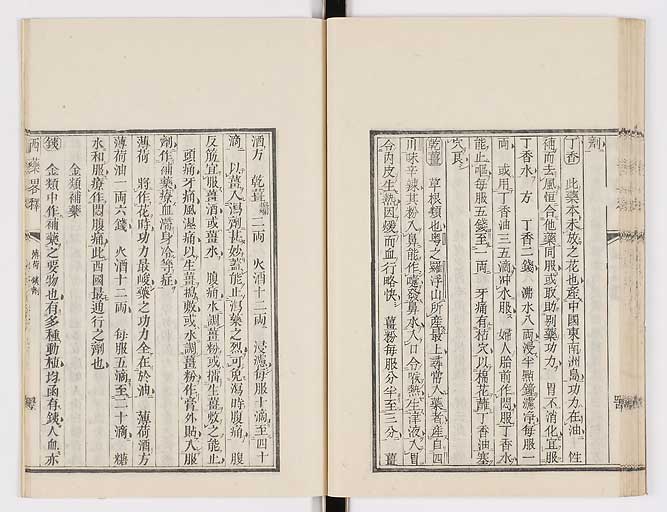 劑
丁香　此藥本未放之花也產中國東南洲島功力在油　性
補而去風恒合他藥同服或取助別藥功力　胃不消化宜服
丁香水　方　丁香二錢　沸水八兩浸半點鐘濾淨每服一
兩　或用丁香油三五滴沖水服　婦人胎前作悶服丁香水
能止嘔每服五錢至一兩　牙痛有枯穴以棉花蘸丁香油塞
穴良
乾薑　草根類也粵之羅浮山所產最上尋常入藥者產自四
川味辛辣其粉入鼻能作嚏發鼻水入口合喉熱生津液入胃
令內皮生熱因煖而血行略快　薑粉每服分半至三分　薑
酒方　乾薑二兩　火酒十二兩　浸濾每服十滴至四十
滴　以薑入瀉劑甚妙蓋能止瀉藥之烈可免瀉時腹痛　腹
反筋宜服薑酒或薑水　腹痛水調薑粉或擂生薑敷之能止
頭痛牙痛風溼痛以生薑搗敷或水調薑粉作膏外貼入服
劑作補藥療血滯身冷等症
薄荷　將作花時功力最峻藥之功力全在於油　薄荷酒方
薄荷油一兩六錢　火酒十二兩　每服五滴至二十滴　糖
水和服療作悶腹痛此西國最通行之劑也
金類補藥
鐵　金類中作補藥之要物也有多種動植均函有鐵人血亦
西藥畧釋
薄荷　鐵劑